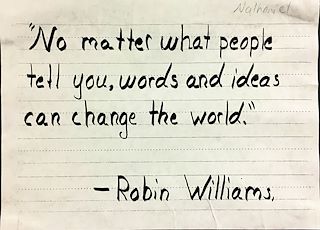 Nathaniel
"No matter what people
tell you, words and ideas
can change the world."
– Robin Williams.